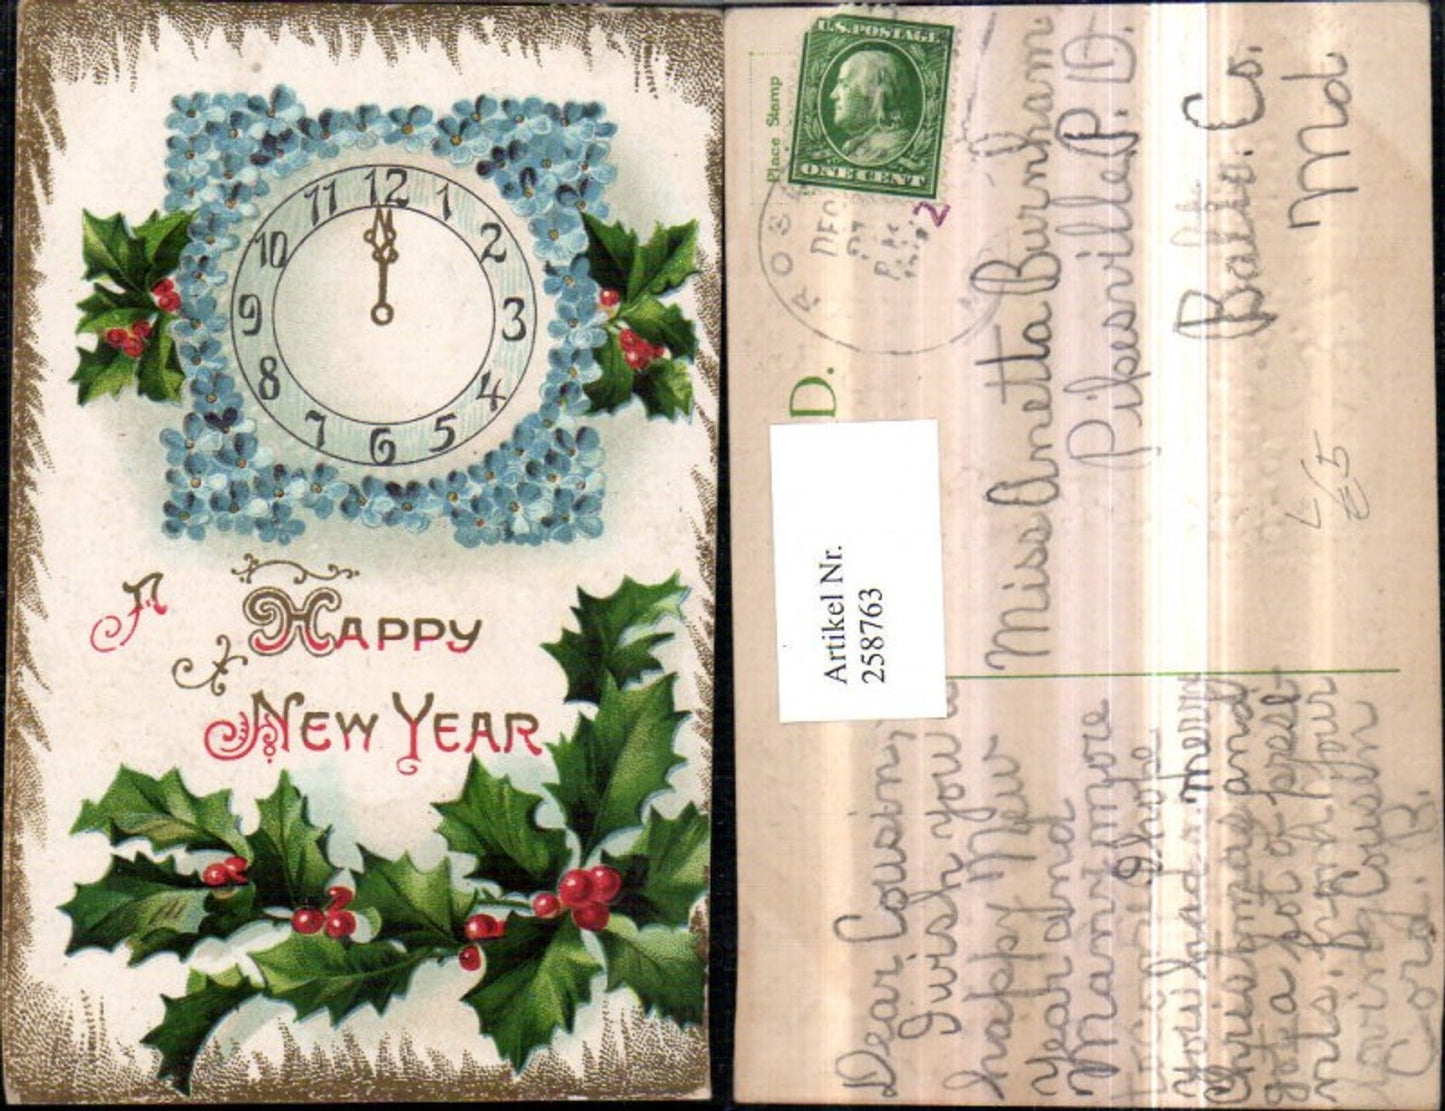 12
1
2
3
4
5
6
7
8
9
10
11
A
Happy
New Year
Place Stamp
U.S. POSTAGE
ONE CENT
DEC
2
D.
Artikel Nr.
258763
Miss Anetta Burnham
Pikesville P. D.
Balto. Co.
Md
Dear Cousin,
I wish you a
happy New
Year and
Many more
I hope
you had a merry
Christmas and
got a lot of prese
nts. from Your
loving Cousin
Cora. B.